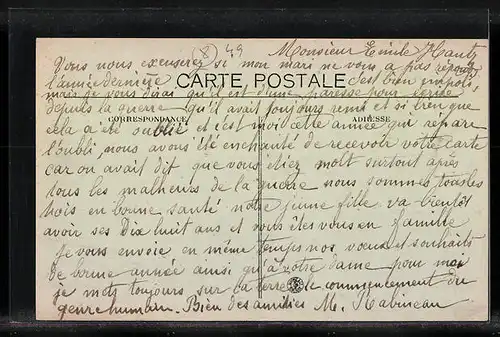 (8) 49
Monsieur Emile Hantz
Vous nous excuserez si mon mari ne vous a pas répondu
l'année dernière c'est bien impoli,
CARTE POSTALE
mais je vous dirai qu'il est d'une paresse pour écrire
depuis la guerre qu'il avait toujours remit et si bien que
CORRESPONDANCE ADRESSE
cela a été oublié et c'est moi cette année qui répare
l'oubli nous avons été enchanté de recevoir votre carte
car on avait dit que vous étiez mort surtout après
tous les malheurs de la guerre nous sommes tous les
trois en bonne santé notre jeune fille va bientôt
avoir ses dix huit ans et vous êtes vous en famille
Je vous envoie en même temps nos voeux et souhaits
de bonne année ainsi qu'à votre dame pour moi
je mets toujours sur la terre le commencement du
genre humain. Bien des amitiés M. Rabineau